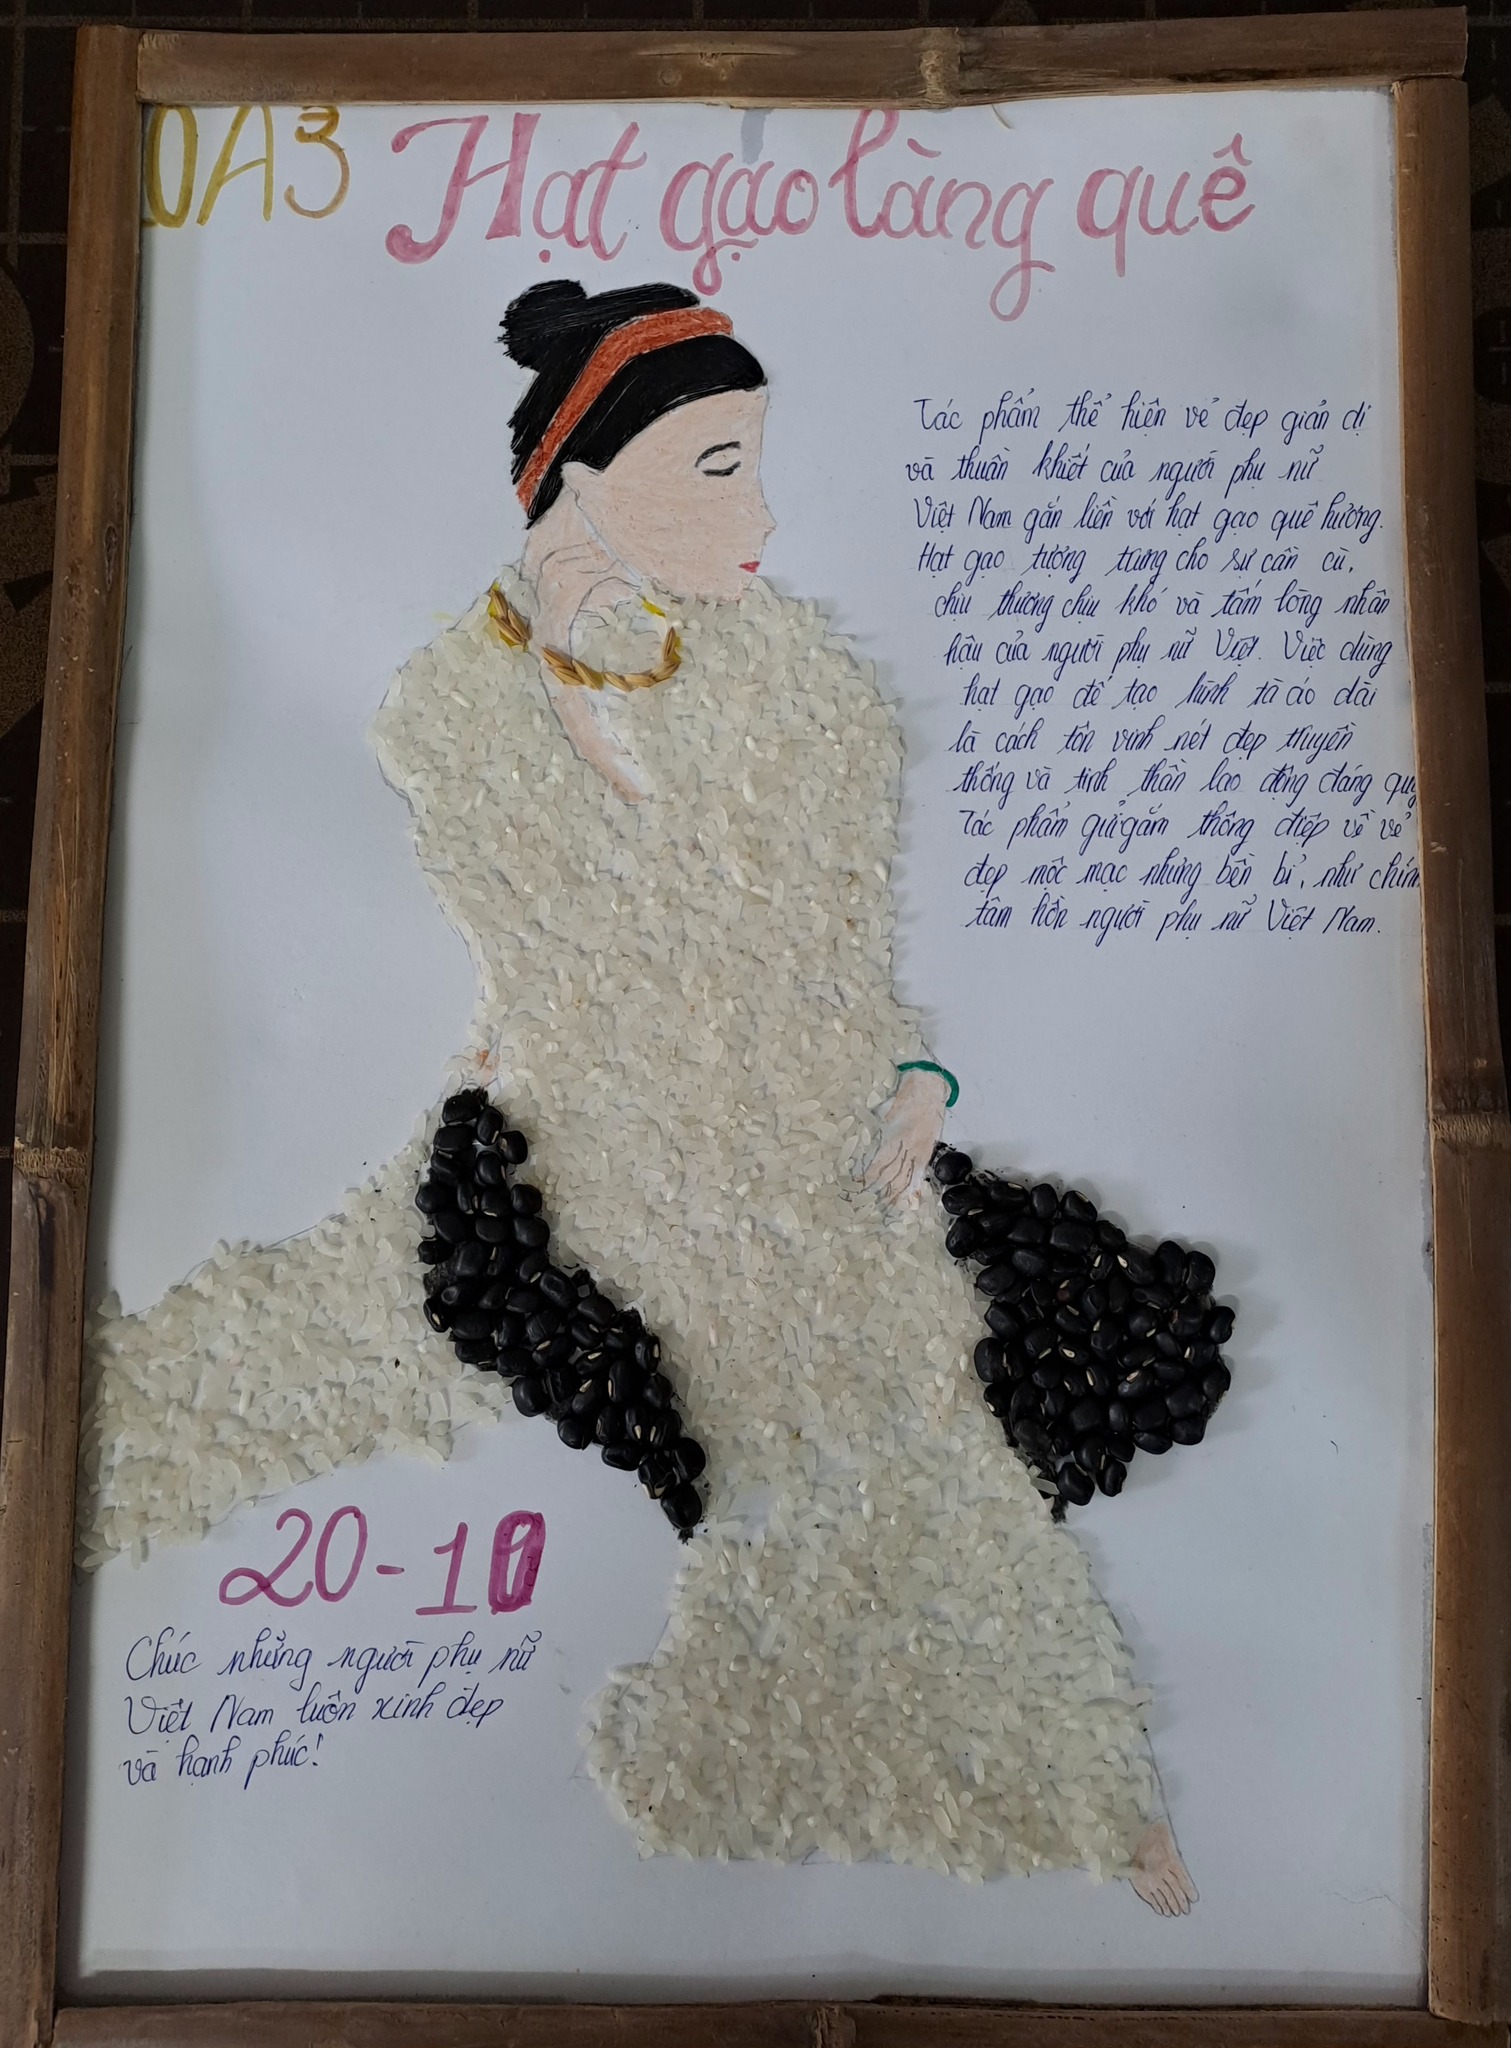 0A3
Hạt gạo làng quê
Tác phẩm thể hiện vẻ đẹp giản dị
và thuần khiết của người phụ nữ
Việt Nam gắn liền với hạt gạo quê hương.
Hạt gạo tượng trưng cho sự cần cù,
chịu thương chịu khó và tấm lòng nhân
hậu của người phụ nữ Việt. Việc dùng
hạt gạo để tạo hình tà áo dài
là cách tôn vinh nét đẹp truyền
thống và tinh thần lao động đáng quý
Tác phẩm gửi gắm thông điệp về vẻ
đẹp mộc mạc nhưng bền bỉ, như chính
tâm hồn người phụ nữ Việt Nam.
20-10
Chúc những người phụ nữ
Việt Nam luôn xinh đẹp
và hạnh phúc!